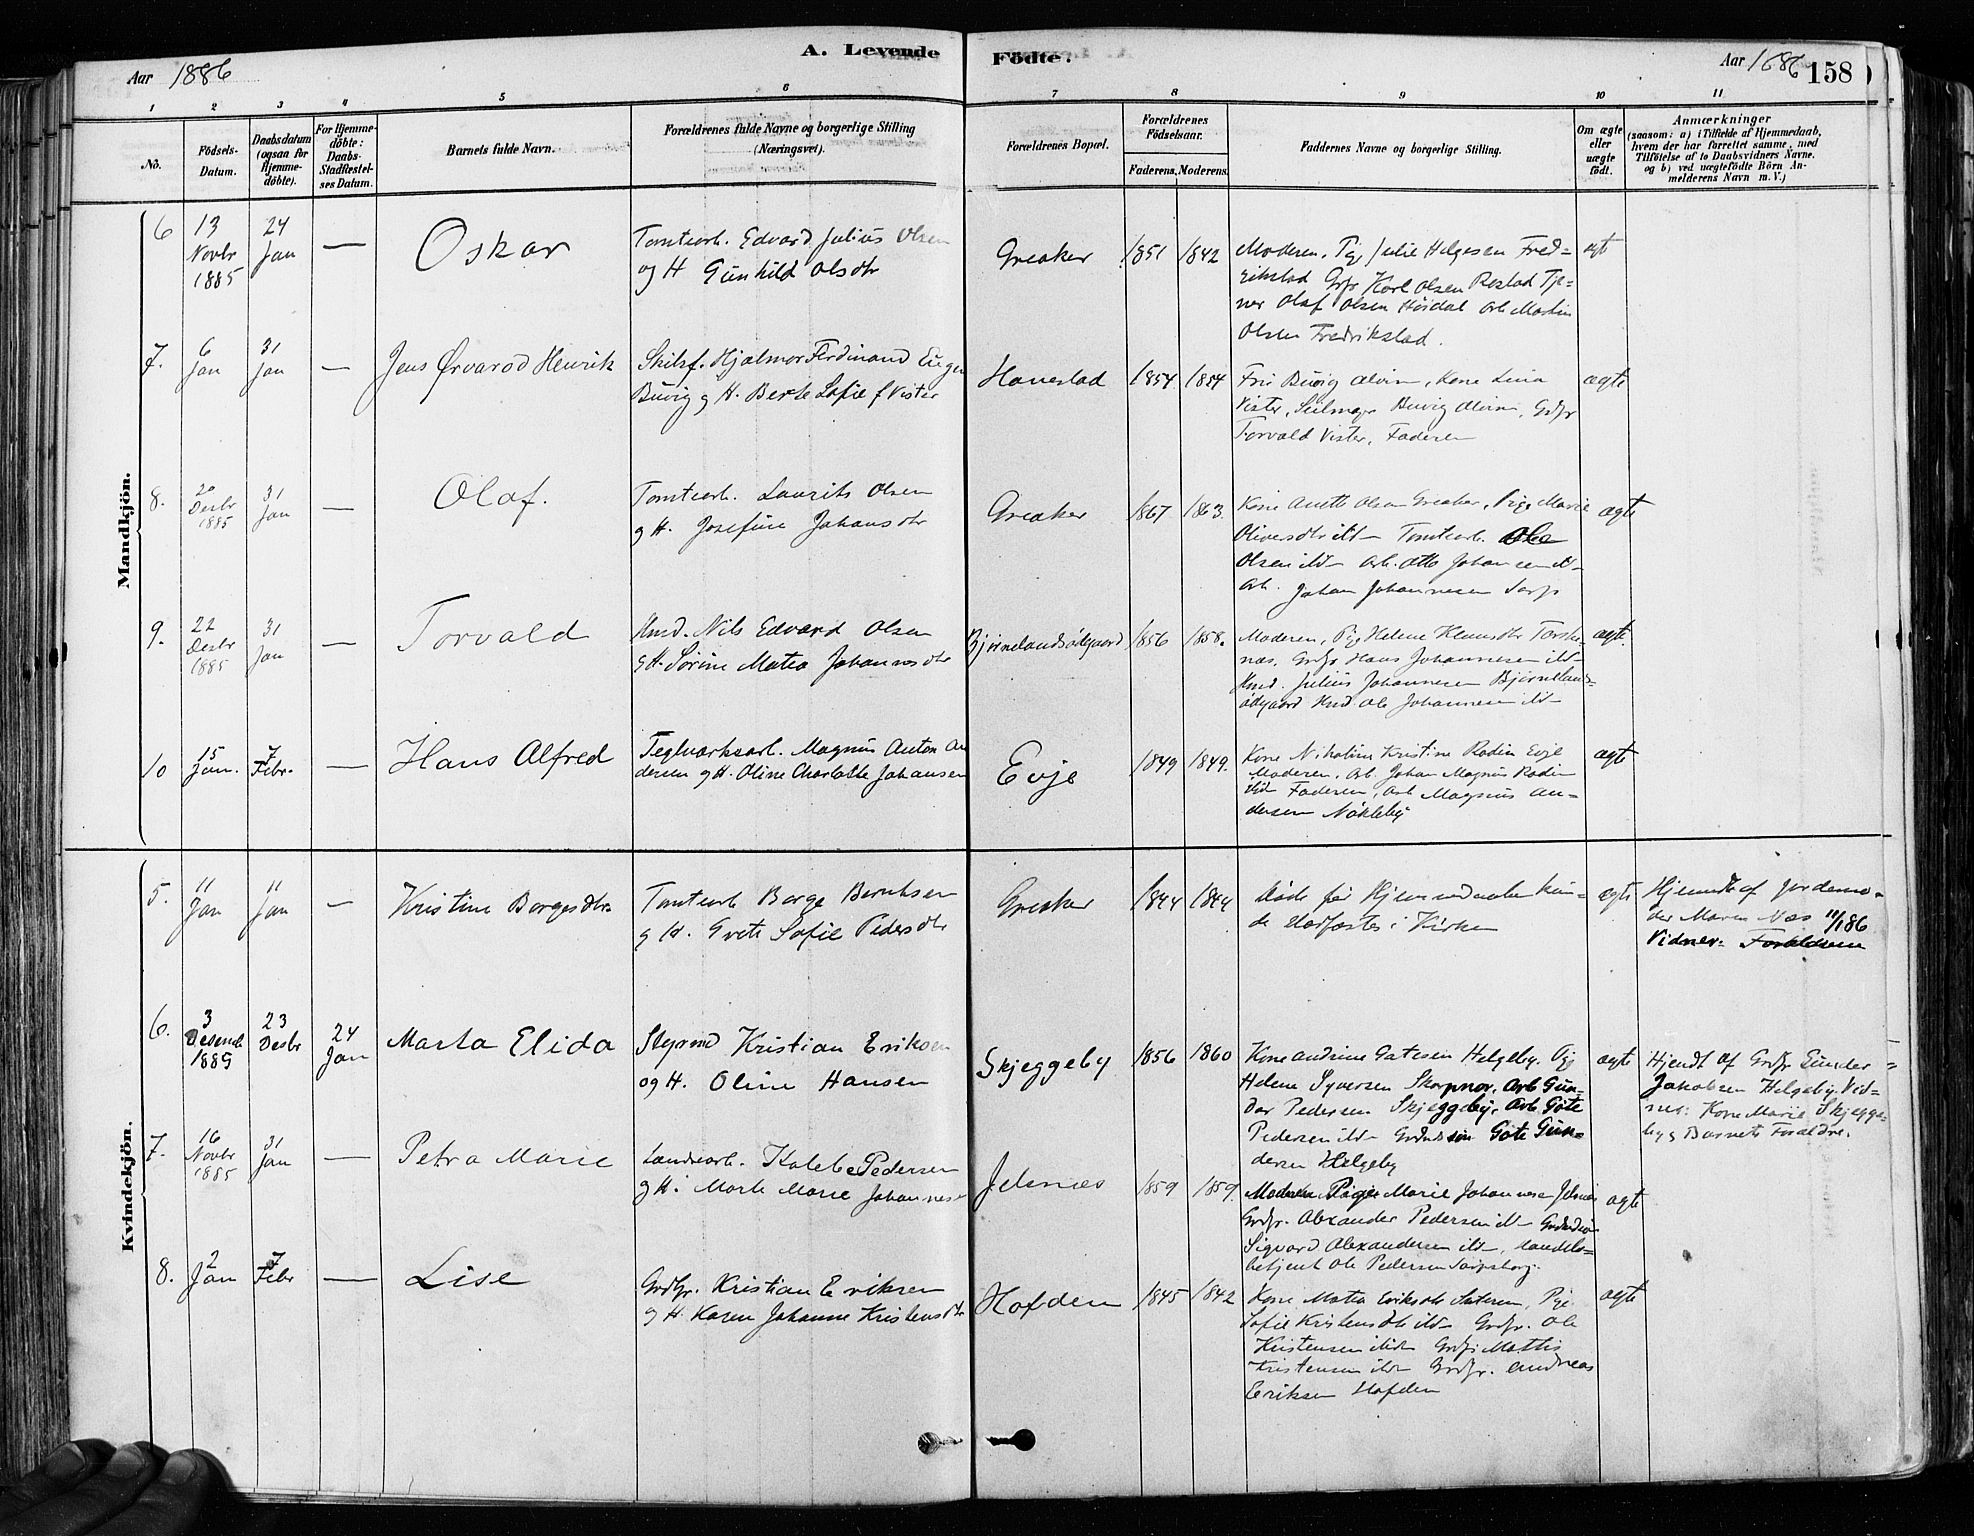 A. Levende Födte.
Aar 1886
Aar 1886 158
1 2 3 4 5 6 7 8 9 10 11
No.
Födsels-
Datum.
Daabsdatum
(ogsaa for
Hjemme-
döbte).
For Hjemme-
döbte:
Daabs-
Stadfæstel-
ses Datum.
Barnets fulde Navn.
Forældrenes fulde Navne og borgerlige Stilling
(Næringsvei).
Forældrenes Bopæl.
Forældrenes
Födselsaar.
Faderens. Moderens.
Faddernes Navne og borgerlige Stilling.
Om ægte
eller
uægte
födt.
Anmærkninger
(saasom: a) i Tilfælde af Hjemmedaab,
hvem der har forrettet samme, med
Tilföielse af to Daabsvidners Navne.
og b) ved uægtefödte Börn An-
melderens Navn m. V.)
Mandkjön.
6
13
Novbr
1885
24
Jan
—
Oskar
Tomtearb. Edvard Julius Olsen
og H Gunhild Olsdtr
Greaker
1851
1842
Moderen, Pige Julie Helgesen Fred=
rikstad Grdr Karl Olsen Rostad Tje=
ner Olaf Olsen Høidal Arb Martin
Olsen Fredrikstad.
ægt
7.
6
Jan
31
Jan
—
Jens Ørvarod Henrik
Skibsf. Hjalmar Ferdinand Eugen
Buvig g H. Berte Sofie f Vister
Hanestad
1854
1854
Fru Buvig Alvim, Kone Lina
Vister, Seilmager Buvig Alvim, Grdr
Torvald Vister, Faderen
ægte
8.
20
Desbr
1885
31
Jan
—
Olaf.
Tomtearb. Laurits Olsen
g H. Josefine Johansdtr
Greaker
1867
1863.
Kone Anette Olsen Greaker, Pige Marie
Oliversdtr ibd Tomtearb. Ole
Olsen ibd Arb. Otto Johansen ibd
Arb. Johan Johannesen Sarp
ægte
9.
22
Desbr
1885
31
Jan
—
Torvald
Hmd. Nils Edvard Olsen
g H. Sørine Matea Johannesdtr
Bjørnelandsødgaard
1856
1858.
Moderen, Pige Helene Klausdtr Torske=
næs, Grdr Hans Johannesen ibd
Hmd. Julius Johannesen Bjørneland=
ødgaard Hmd Ole Johannesen ibd
ægte.
10
15
Jan.
7
Febr.
—
Hans Alfred
Teglværksarb. Magnus Anton An
dersen g H. Oline Charlotte Johansen
Evje
1849
1849.
Kone Nikoline Kristine Rodin Evje
Moderen, Arb. Johan Magnus Rodin
ibd Faderen, Arb Magnus An=
dersen Nøkleby
ægte
Kvindekjön.
5.
11
Jan
11
Jan
—
Kristine Borgesdtr.
Tomtearb Borge Berntsen
g H. Grete Sofie Pedersdtr
Greaker
1844
1844
Døde før Hjemmedaaben kun=
de stadfæstes i Kirken
ægte
Hjemdt af Jordemo=
der Maren Næs 11/1 86
Vidner: Forældrene
6.
3
Desemb
1885
23
Desbr
24
Jan
Marta Elida
Styrmd Kristian Eriksen
og H. Oline Hansen
Skjeggeby
1856
1860
Kone Andrine Gatesen Helgeby. Pige
Helene Syversen Skorpnor, Arb Gun=
dar Pedersen Skjeggeby, Arb Gøte
Pedersen ibd Grdmssøn Gøte Gun=
dersen Helgeby
ægte
Hjemdt af Grdr Gunder
Jakobsen Helgeby. Vid=
ner: Kone Marie Skjegge-
by g Barnets Forældre.
7.
16
Novbr
1885
31
Jan
—
Petra Marie
Landarb. Kaleb Pedersen
g H. Marte Marie Johannes
Jelsnæs
1859
1859.
Moderen Pige Marie Johannesen Jelsnæs
Grdr. Alexander Pedersen ibd
Sigvard Alexandersen ibd, Handels=
betjent Ole Pedersen Sarpsborg.
ægte
8.
2
Jan
7
Febr
—
Lise
Grdr. Kristian Eriksen
g H Karen Johanne Kristensdtr
Hafden
1845
1842
Kone Matea Eriksdtr Sateren, Pige
Sofie Kristensdtr ibd Grdr. Ole
Kristensen ibd Grdr Mattis
Kristensen ibd Grdr. Andreas
Eriksen Hafden
ægte